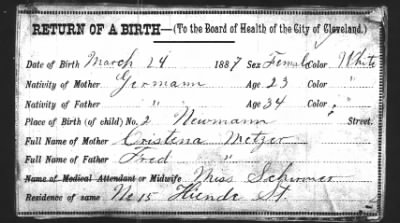 RETURN OF A BIRTH—(To the Board of Health of the City of Cleveland.)
Date of Birth March 24 1887 Sex Female Color White
Nativity of Mother Germann Age 23 Color "
Nativity of Father " Age 34 Color "
Place of Birth (of child) No. 2 Newmann Street.
Full Name of Mother Cristena Metzer
Full Name of Father Fred "
Name of Medical Attendant or Midwife Miss
Residence of same No 15 St.